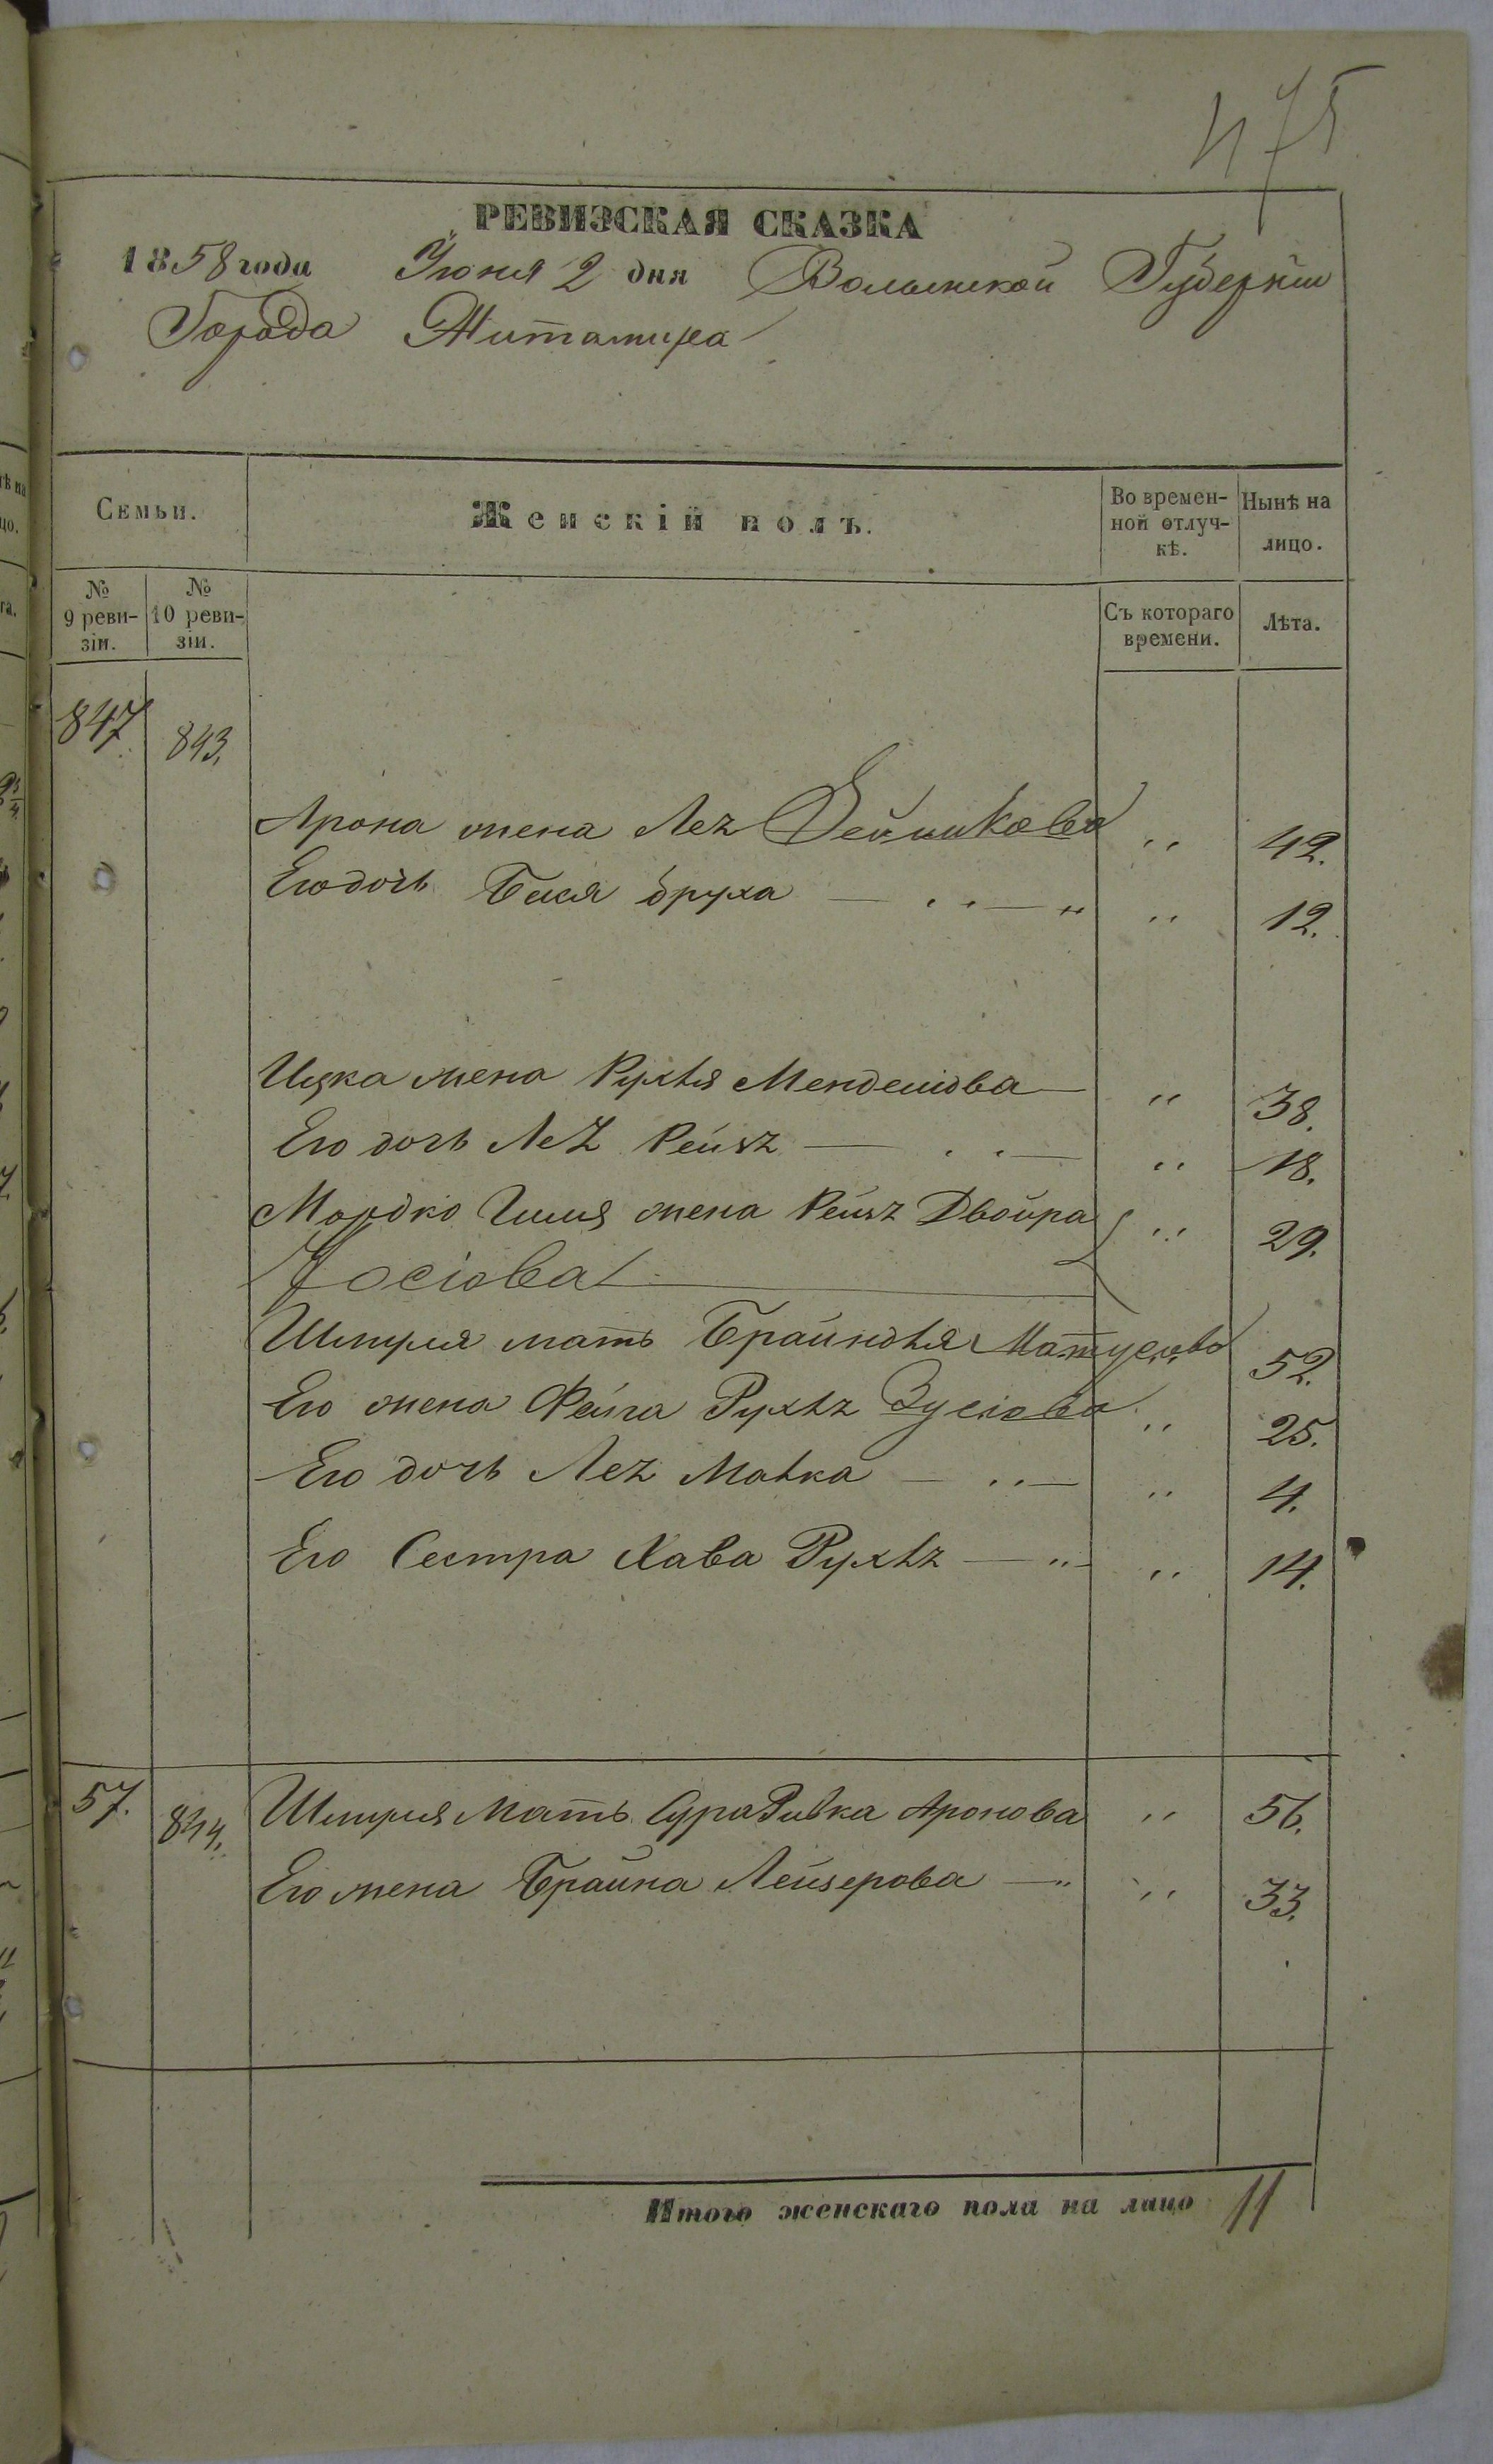 475
РЕВИЗСКАЯ СКАЗКА
1858 года Июня 2 дня Волынской Губернiи
Города Житомира
Семьи.
Женскiй полъ.
Во времен-
ной отлуч-
кѣ.
Нынѣ на
лицо.
№
9 реви-
зiи.
№
10 реви-
зiи.
Съ котораго
времени.
Лѣта.
847
843.
Арона жена Лея 42.
Его дочь Бася Бруха — „ — „ „ 12.
Ицка жена Рухля Менделiова — „ 38.
Его дочь Лея Рейзя — „ — „ 18.
Мордко жена Рейзя Двойра „ 29.
Iосiова
Шмуля мать Брайндля Матусова 52.
Его жена Фейга Рухля Зусiова „ 25.
Его дочь Лея Малка — „ — „ 4.
Его Сестра Хава Рухля — „ — „ 14.
57. 844. Шмуля Мать Сура Ривка Аронова „ 56.
Его жена Брайна Лейзерова — „ „ 33.
Итого женскаго пола на лицо 11